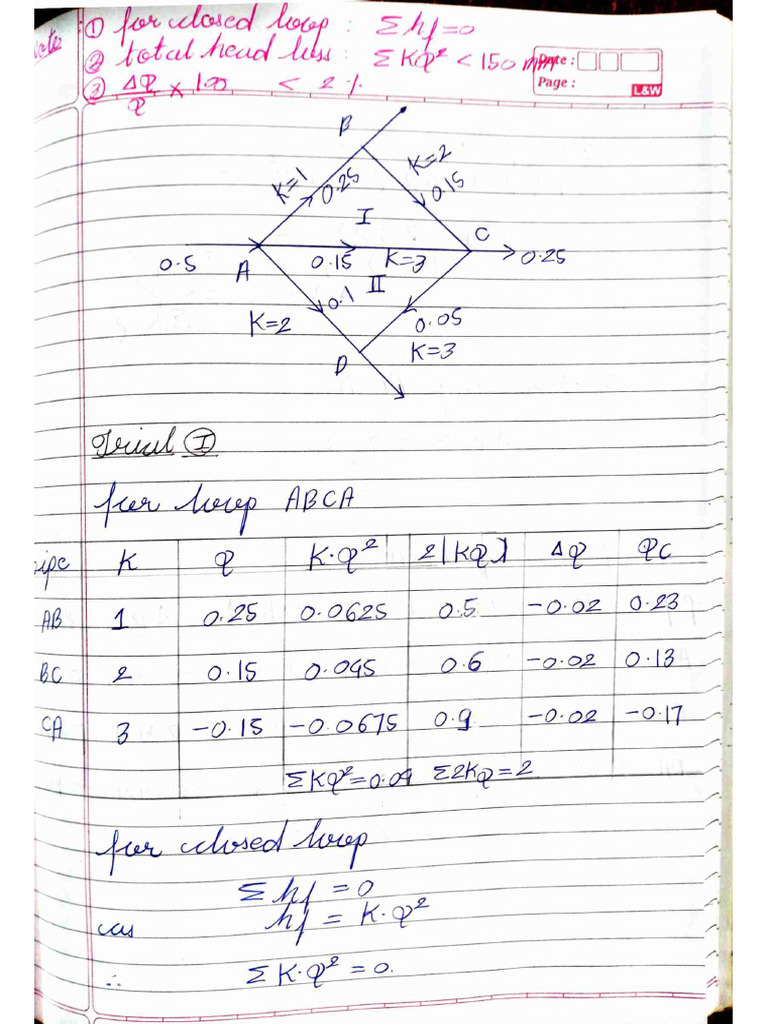 Note
① for closed loop : Σhf=0
② total head loss : ΣKQ² < 150 mm
③ ΔQ/Q × 100 < 2 %
Date :
Page :
L&W
B
K=1
0.25
K=2
0.15
I
C
0.5
A
0.15 K=3
0.25
II
0.1
K=2
0.05
K=3
D
Trial ①
for loop ABCA
pipe K Q K·Q² 2|KQ| ΔQ Qc
AB 1 0.25 0.0625 0.5 -0.02 0.23
BC 2 0.15 0.045 0.6 -0.02 0.13
CA 3 -0.15 -0.0675 0.9 -0.02 -0.17
ΣKQ²=0.04 Σ2KQ=2
for closed loop
Σhf = 0
as hf = K·Q²
∴ ΣK·Q² = 0.